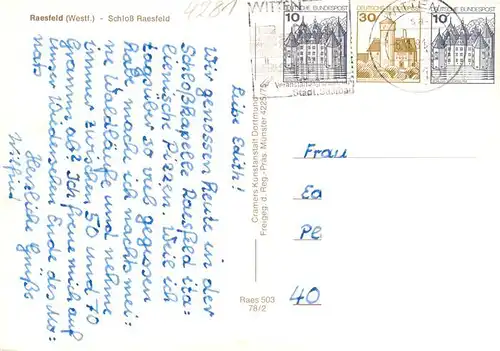 Raesfeld (Westf.) - Schloß Raesfeld
4281
WITTEN
10
DEUTSCHE BUNDESPOST
30
DEUTSCHE BUNDESPOST
10
DEUTSCHE BUNDESPOST
Liebe Edith!
Wir genossen heute in der
Schloßkapelle Raesfeld ita-
lienische Pizzen. Weil ich
tagsüber so viel gegessen
habe, mach ich nachts mei-
ne Waldläufe und nehme
immer zwischen 50 und 70
Gramm ab? Ich freue mich auf
unser Wiedersehen Ende des Mo-
nats
Herzliche Grüße
Wilfried
Cramers Kunstanstalt Dortmund
Freigeg. d. Reg.-Präs. Münster 4225/75
Raes 503
78/2
Frau
Ea
Pl
40